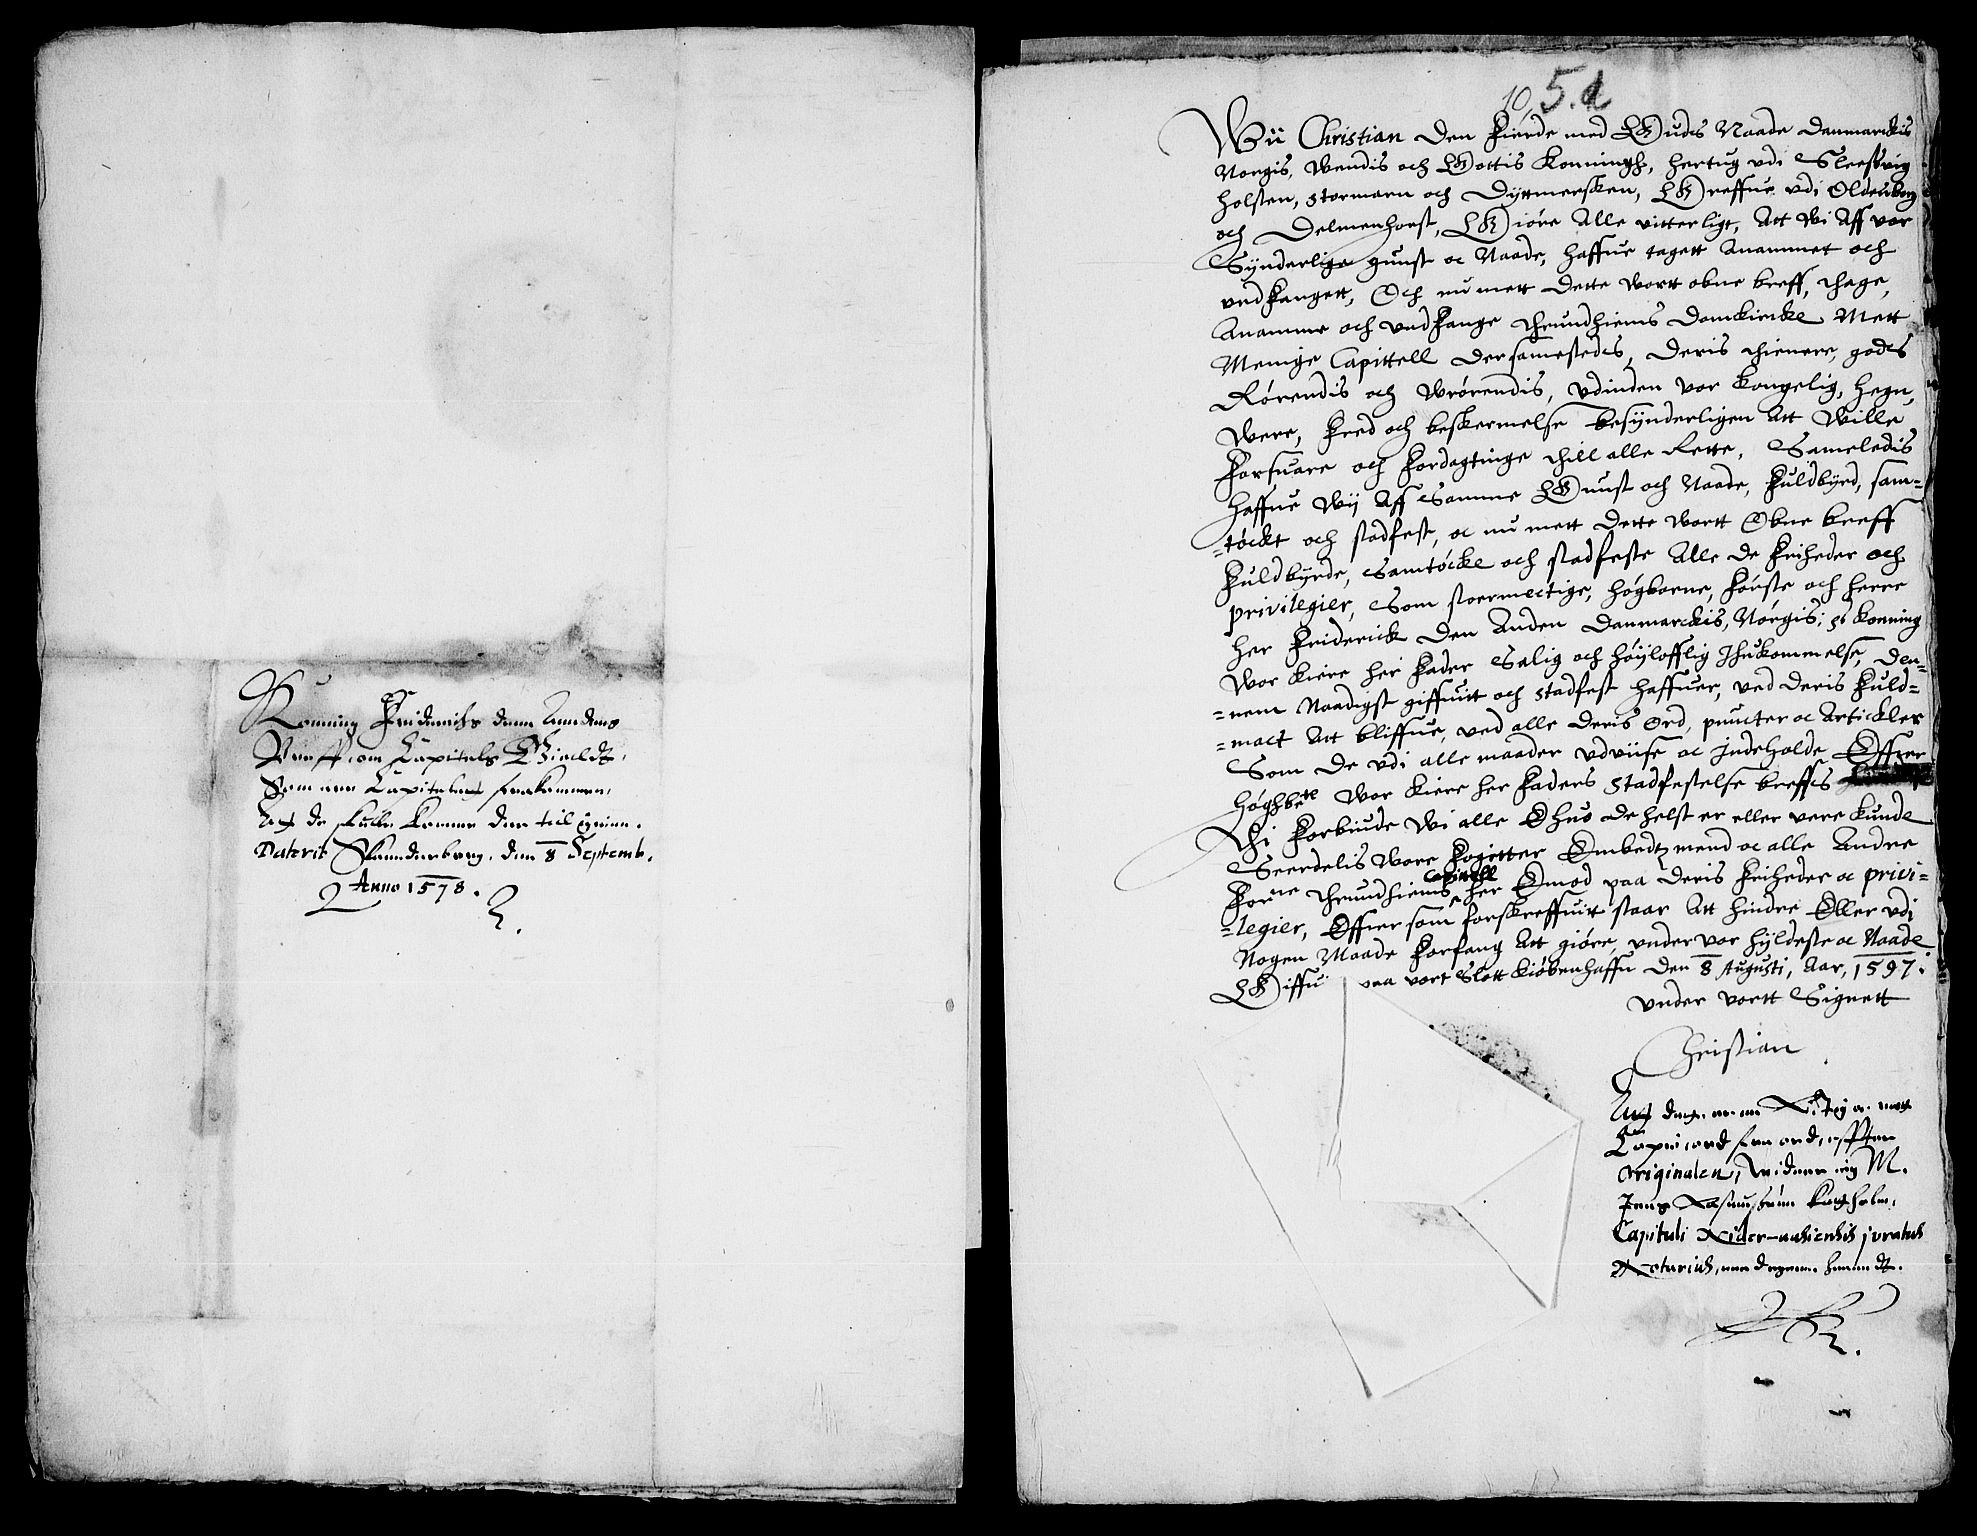 Konning Friderichs denn Andens
Breff om Capitels Gieldt,
Som ere Capitelet frakommen,
At de skulle komme der till igienn.
Daterit Skanderborg, den 8 Septemb.
Anno 1578.
10, 5. d
Wii Christian den Fierde med Guds Naade Danmarckis
Norgis, Wendis och Gottis Konningh, hertug vdi Slessvig
Holsten, Stormarn och Dyttmersken, Greffue vdi Oldenborg
och Delmenhorst, Giøre Alle vitterligt, Att wi Aff vor
Synderlige gunst oc Naade, haffue tagett Anammet och
vndfangett, Och nu mett dette wortt obne breff, thage,
Anamme och vndfange Thrundhiems Domkircke Mett
Menige Capittell dersamestedes, deris thienere, gods
Rørendis och Wrørendis, vdinden vor kongelig, hegn,
were, Fred och beskermelse besynderligen Att wille
Forsuare och Fordagtinge thill alle Rette, Sameledis
haffue Wij Aff Samme Gunst och Naade, Fuldbyrd, sam=
=tøckt och stadfest, oc nu mett dette wortt Obne breff
Fuldbyrde, Samtøcke och stadfeste Alle de Friheder och
privilegier, Som stoermectige, høgborne, Første och herre
Her Friderick den Anden Danmarckis, Norgis, &c konning
Wor kiere her Fader Salig och høylofflig Jhukommelse, den=
=nem Naadigst giffuitt och stadfest haffuer, ved deris Fuld=
=mact Att bliffue, ved alle deris Ord, puncter oc Artickler
Som de vdi alle maader vdviise oc Jndeholde Effter
høghbete Wor kiere her Faders Stadfestelse breffs
Thi Forbiude Wi alle Ehuo de helst er eller vere kunde
Seerdelis Wore Fogetter Embedtzmend oc alle Andre
Forne Thrundhiems Capittell her Emod paa deris Friheder oc privi=
=legier, Effter som forskreffuitt staar Att hindre Eller vdi
Nogen Maade Forfang Att giøre, vnder vor hyldeste oc Naade
Giffui paa vort Slott Kiøbenhaffn den 8 Augusti, Aar, 1597.
vnder vortt Signett
Christian
Att dette er en Rigtig oc
Copie ord fra ord, effter
originalen, Widner ieg M.
Jens
Capituli Nidrosiensis juratus
Notarius, med egenn haandt.